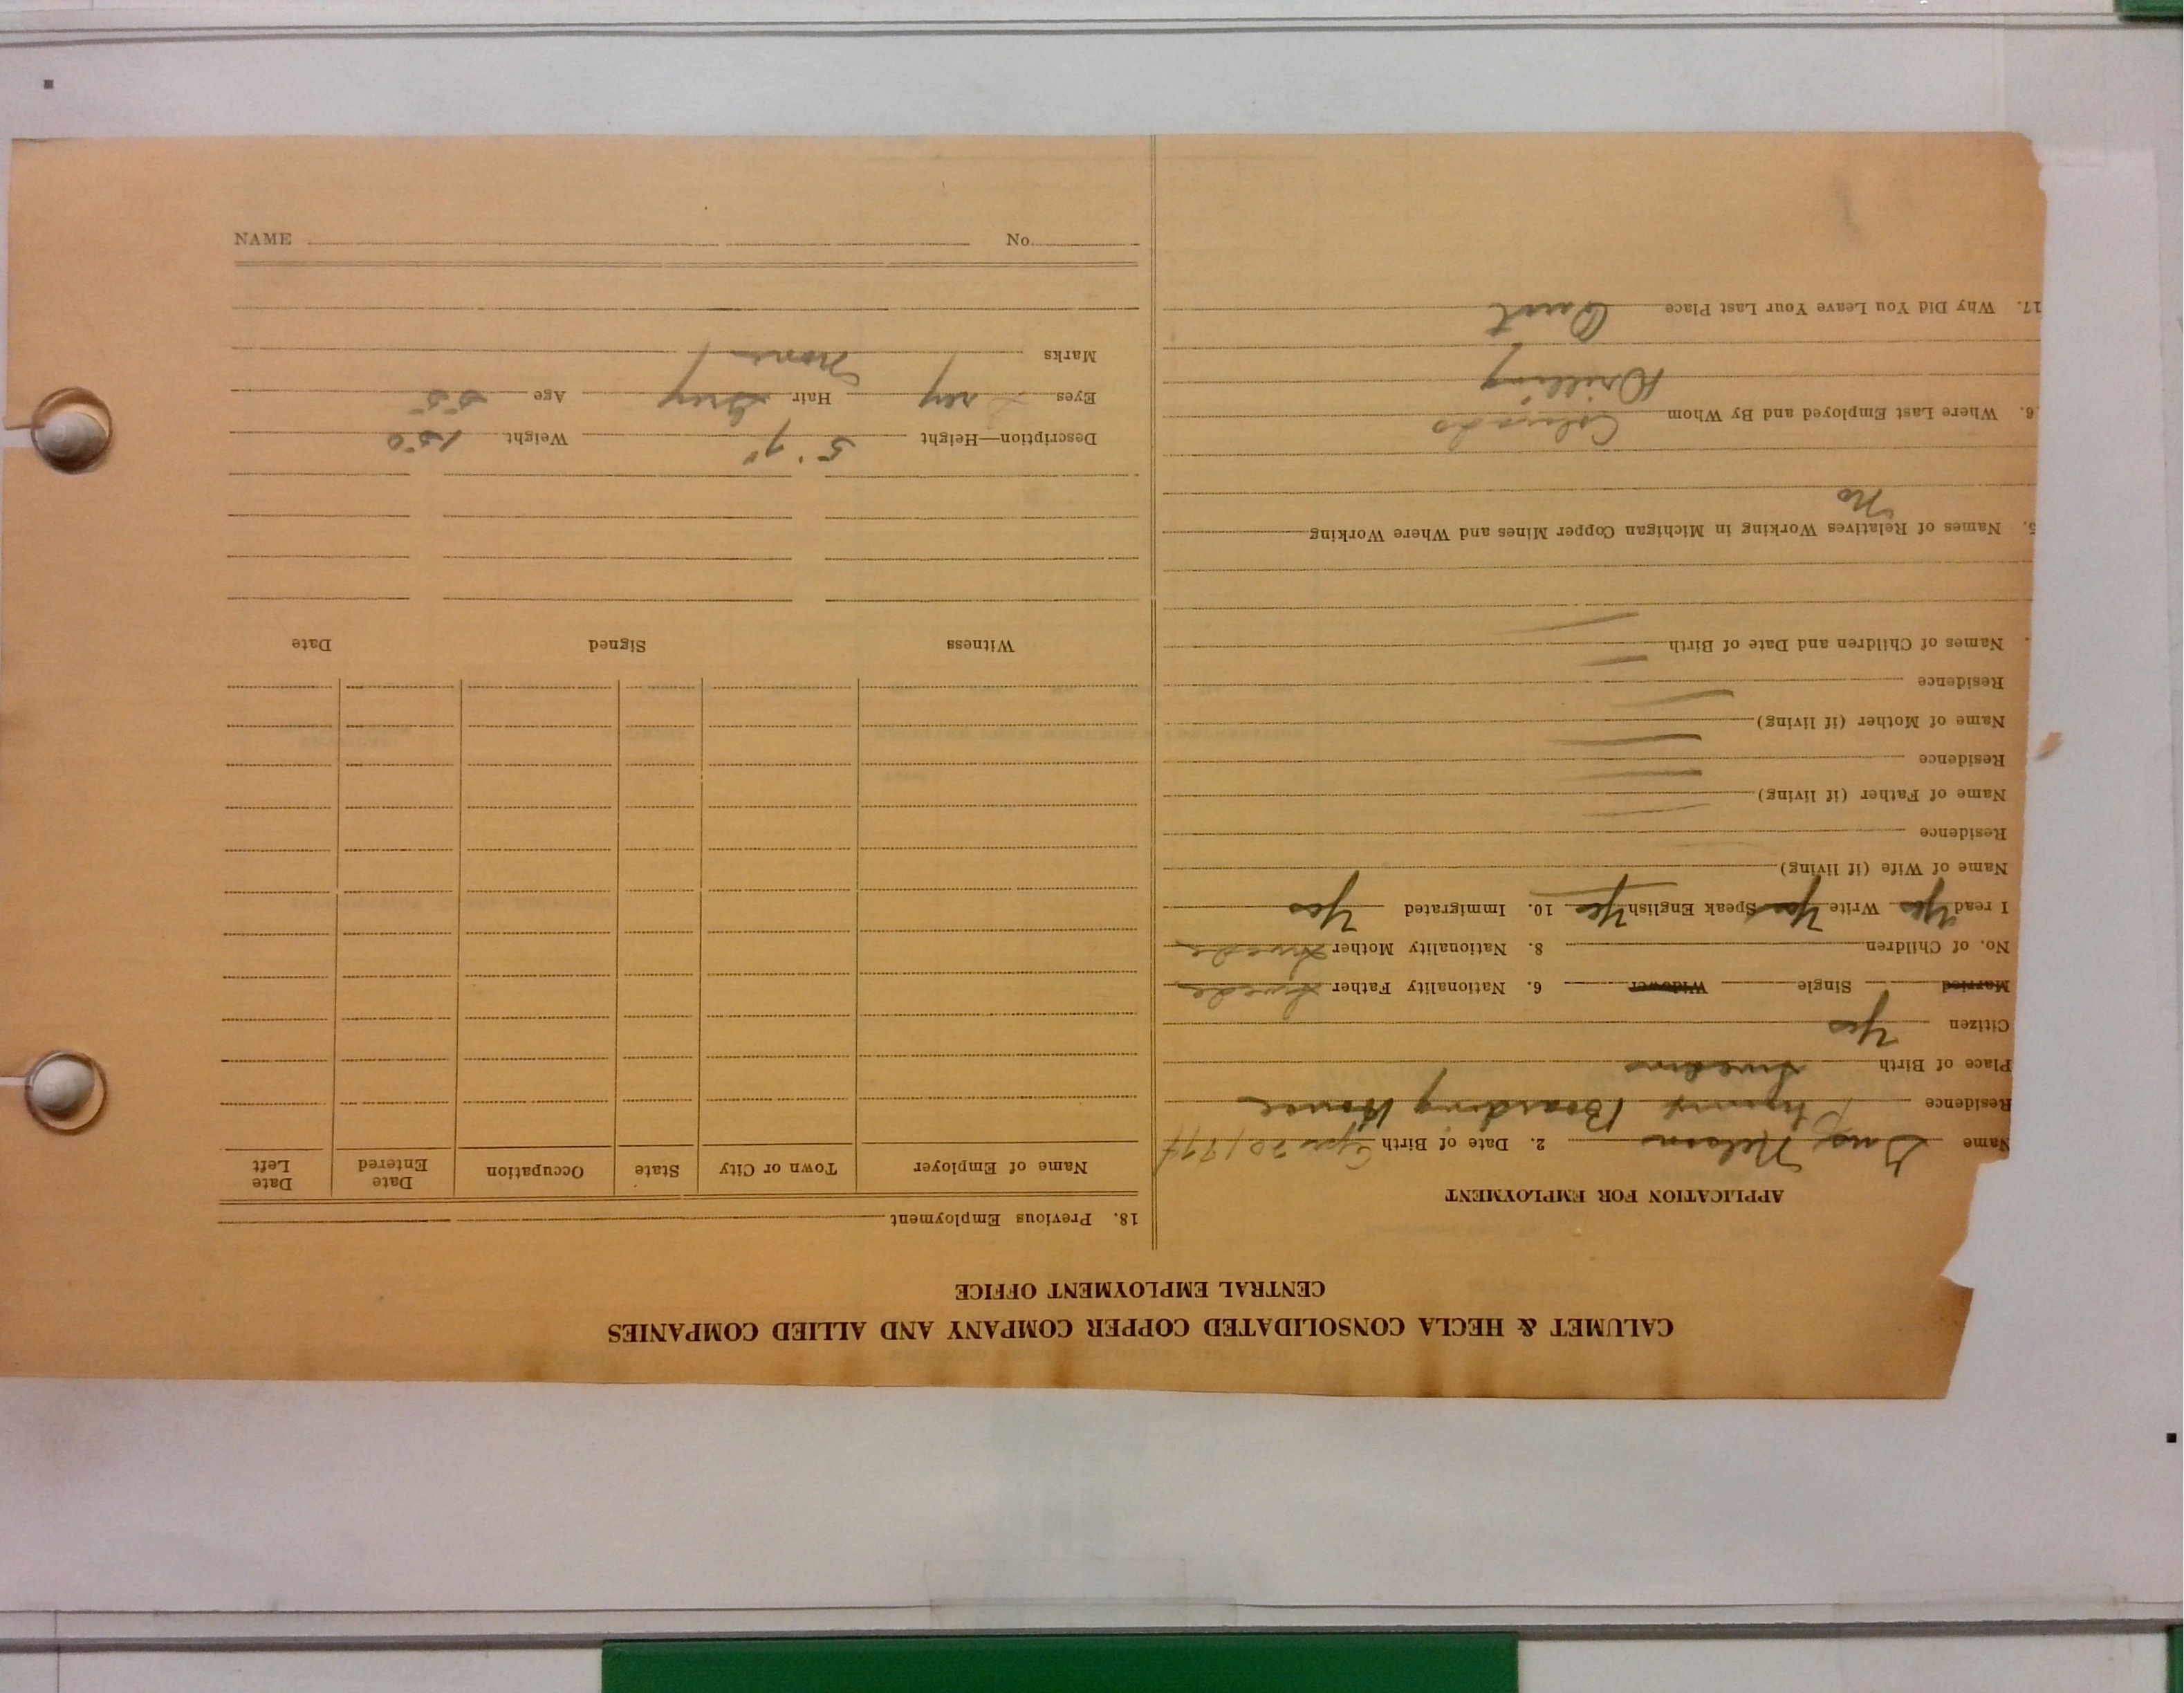 CALUMET & HECLA CONSOLIDATED COPPER COMPANY AND ALLIED COMPANIES
CENTRAL EMPLOYMENT OFFICE
APPLICATION FOR EMPLOYMENT
Name Gus Nelson 2. Date of Birth
Residence Boarding House
Place of Birth Sweden
Citizen Yes
Married Single Widower 6. Nationality Father Swede
No. of Children 8. Nationality Mother Swede
I read Yes Write Yes Speak English Yes 10. Immigrated Yes
Name of Wife (if living)
Residence
Name of Father (if living)
Residence
Name of Mother (if living)
Residence
Names of Children and Date of Birth
5. Names of Relatives Working in Michigan Copper Mines and Where Working
No
6. Where Last Employed and By Whom Colorado
Drilling
17. Why Did You Leave Your Last Place Quit
18. Previous Employment
Name of Employer Town or City State Occupation Date Entered Date Left
Witness Signed Date
Description—Height 5' 7" Weight 150
Eyes Grey Hair Grey Age 55
Marks None
NAME No.